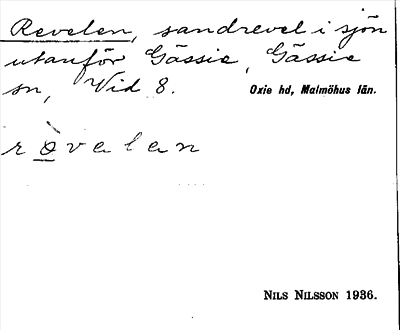 Revelen, sandrevel i sjön
utanför Gässie, Gässie
sn, Vid 8. Oxie hd, Malmöhus län.
rò̱velen
NILS NILSSON 1936.